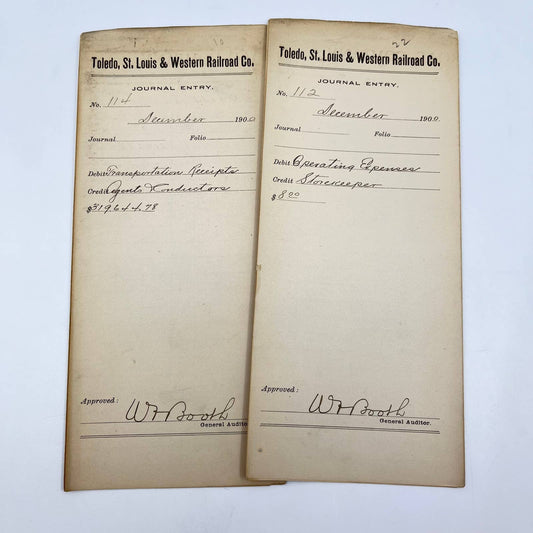 10
Toledo, St. Louis & Western Railroad Co.
JOURNAL ENTRY.
No. 114
December 1900
Journal Folio
Debit Transportation Receipts
Credit Agents & Conductors
$319644.78
Approved:
W F Booth
General Auditor.
22
Toledo, St. Louis & Western Railroad Co.
JOURNAL ENTRY.
No. 112
December 1900
Journal Folio
Debit Operating Expenses
Credit Storekeeper
$8.00
Approved:
W F Booth
General Auditor.